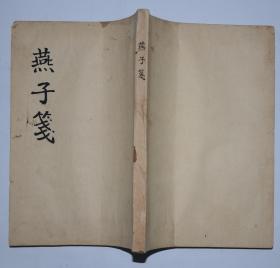 燕子箋
燕子箋